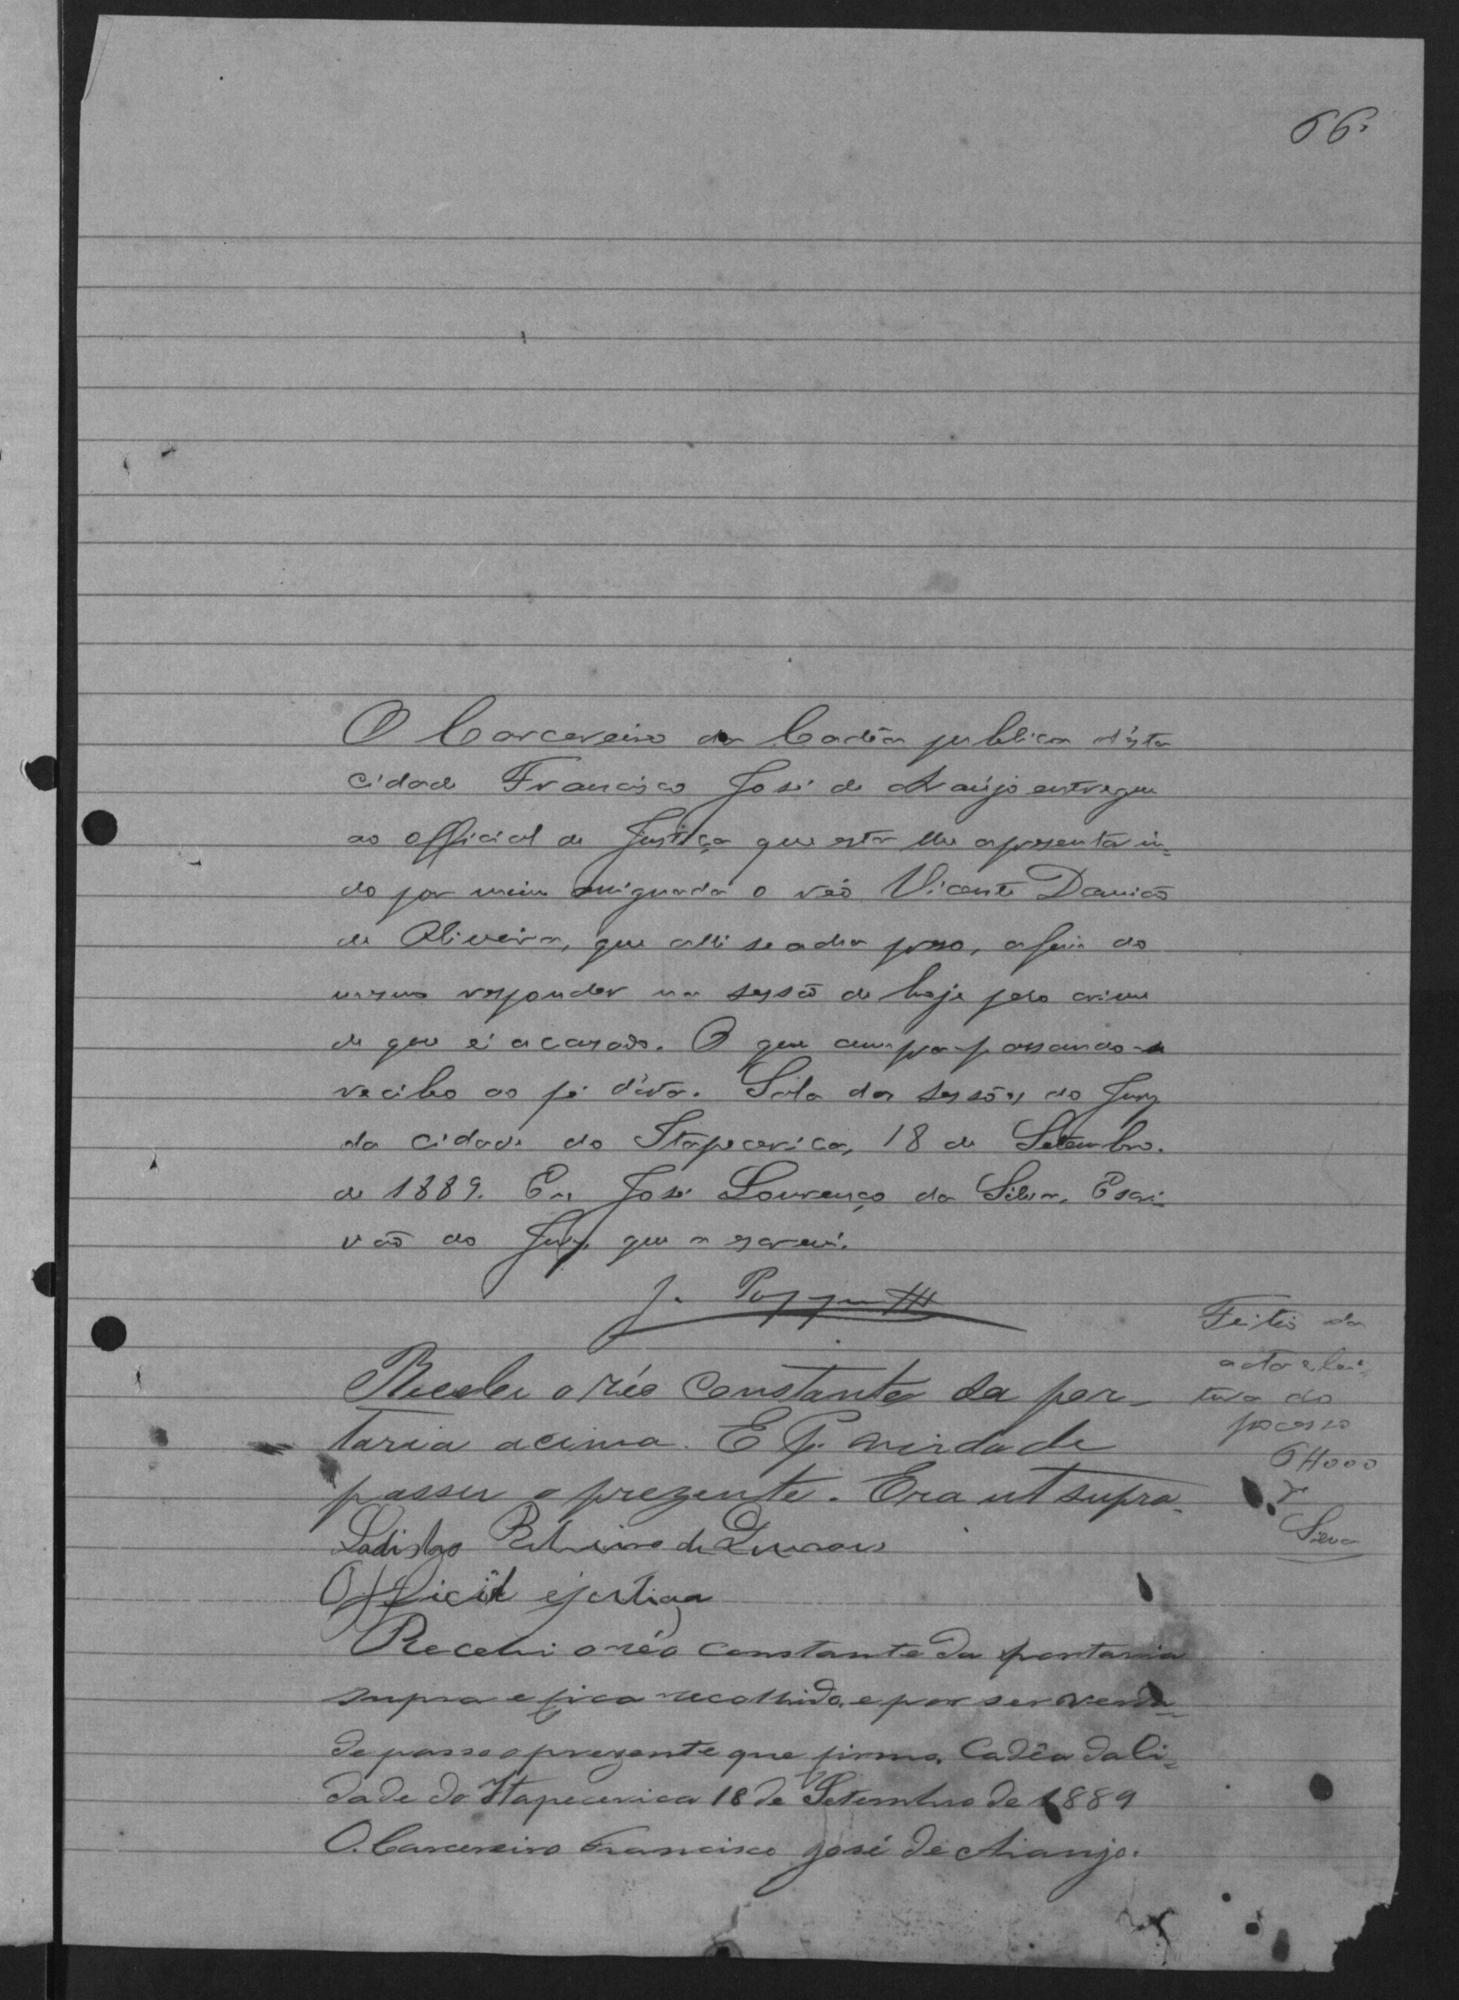 66.
O Carcereiro da Cadêa publica d'esta
cidade Francisco José de Araújo entregue
ao official de Justiça que esta lhe apresentar in-
do por mim assignada o réo Vicente Damião
de Oliveira, que alli se acha preso, afim do
mesmo responder na sessão de hoje pelo crime
de que é acusado. O que cumpra passando
recibo ao pé d'esta. Sala das sessões do Jury
da cidade do Itapecerica, 18 de Setembro.
de 1889. Eu José Lourenço da Silva, Escri-
vão do Jury que a escrevi.
J.
Recebi o réo constante da por-
taria acima. E p. verdade
passei o prezente. Era ut supra.
Ladislao Ribeiro de
Official ejustiça
Recebi o réo constante da portaria
supra e fica recolhido, e por ser verda-
de passo o prezente que firmo. Cadêa da Ci-
dade do Itapecerica 18 de Setembro de 1889
O Carcereiro Francisco José de Araujo.
Feitio da
acta e lei-
tura do
pocesso
6H000
Silva